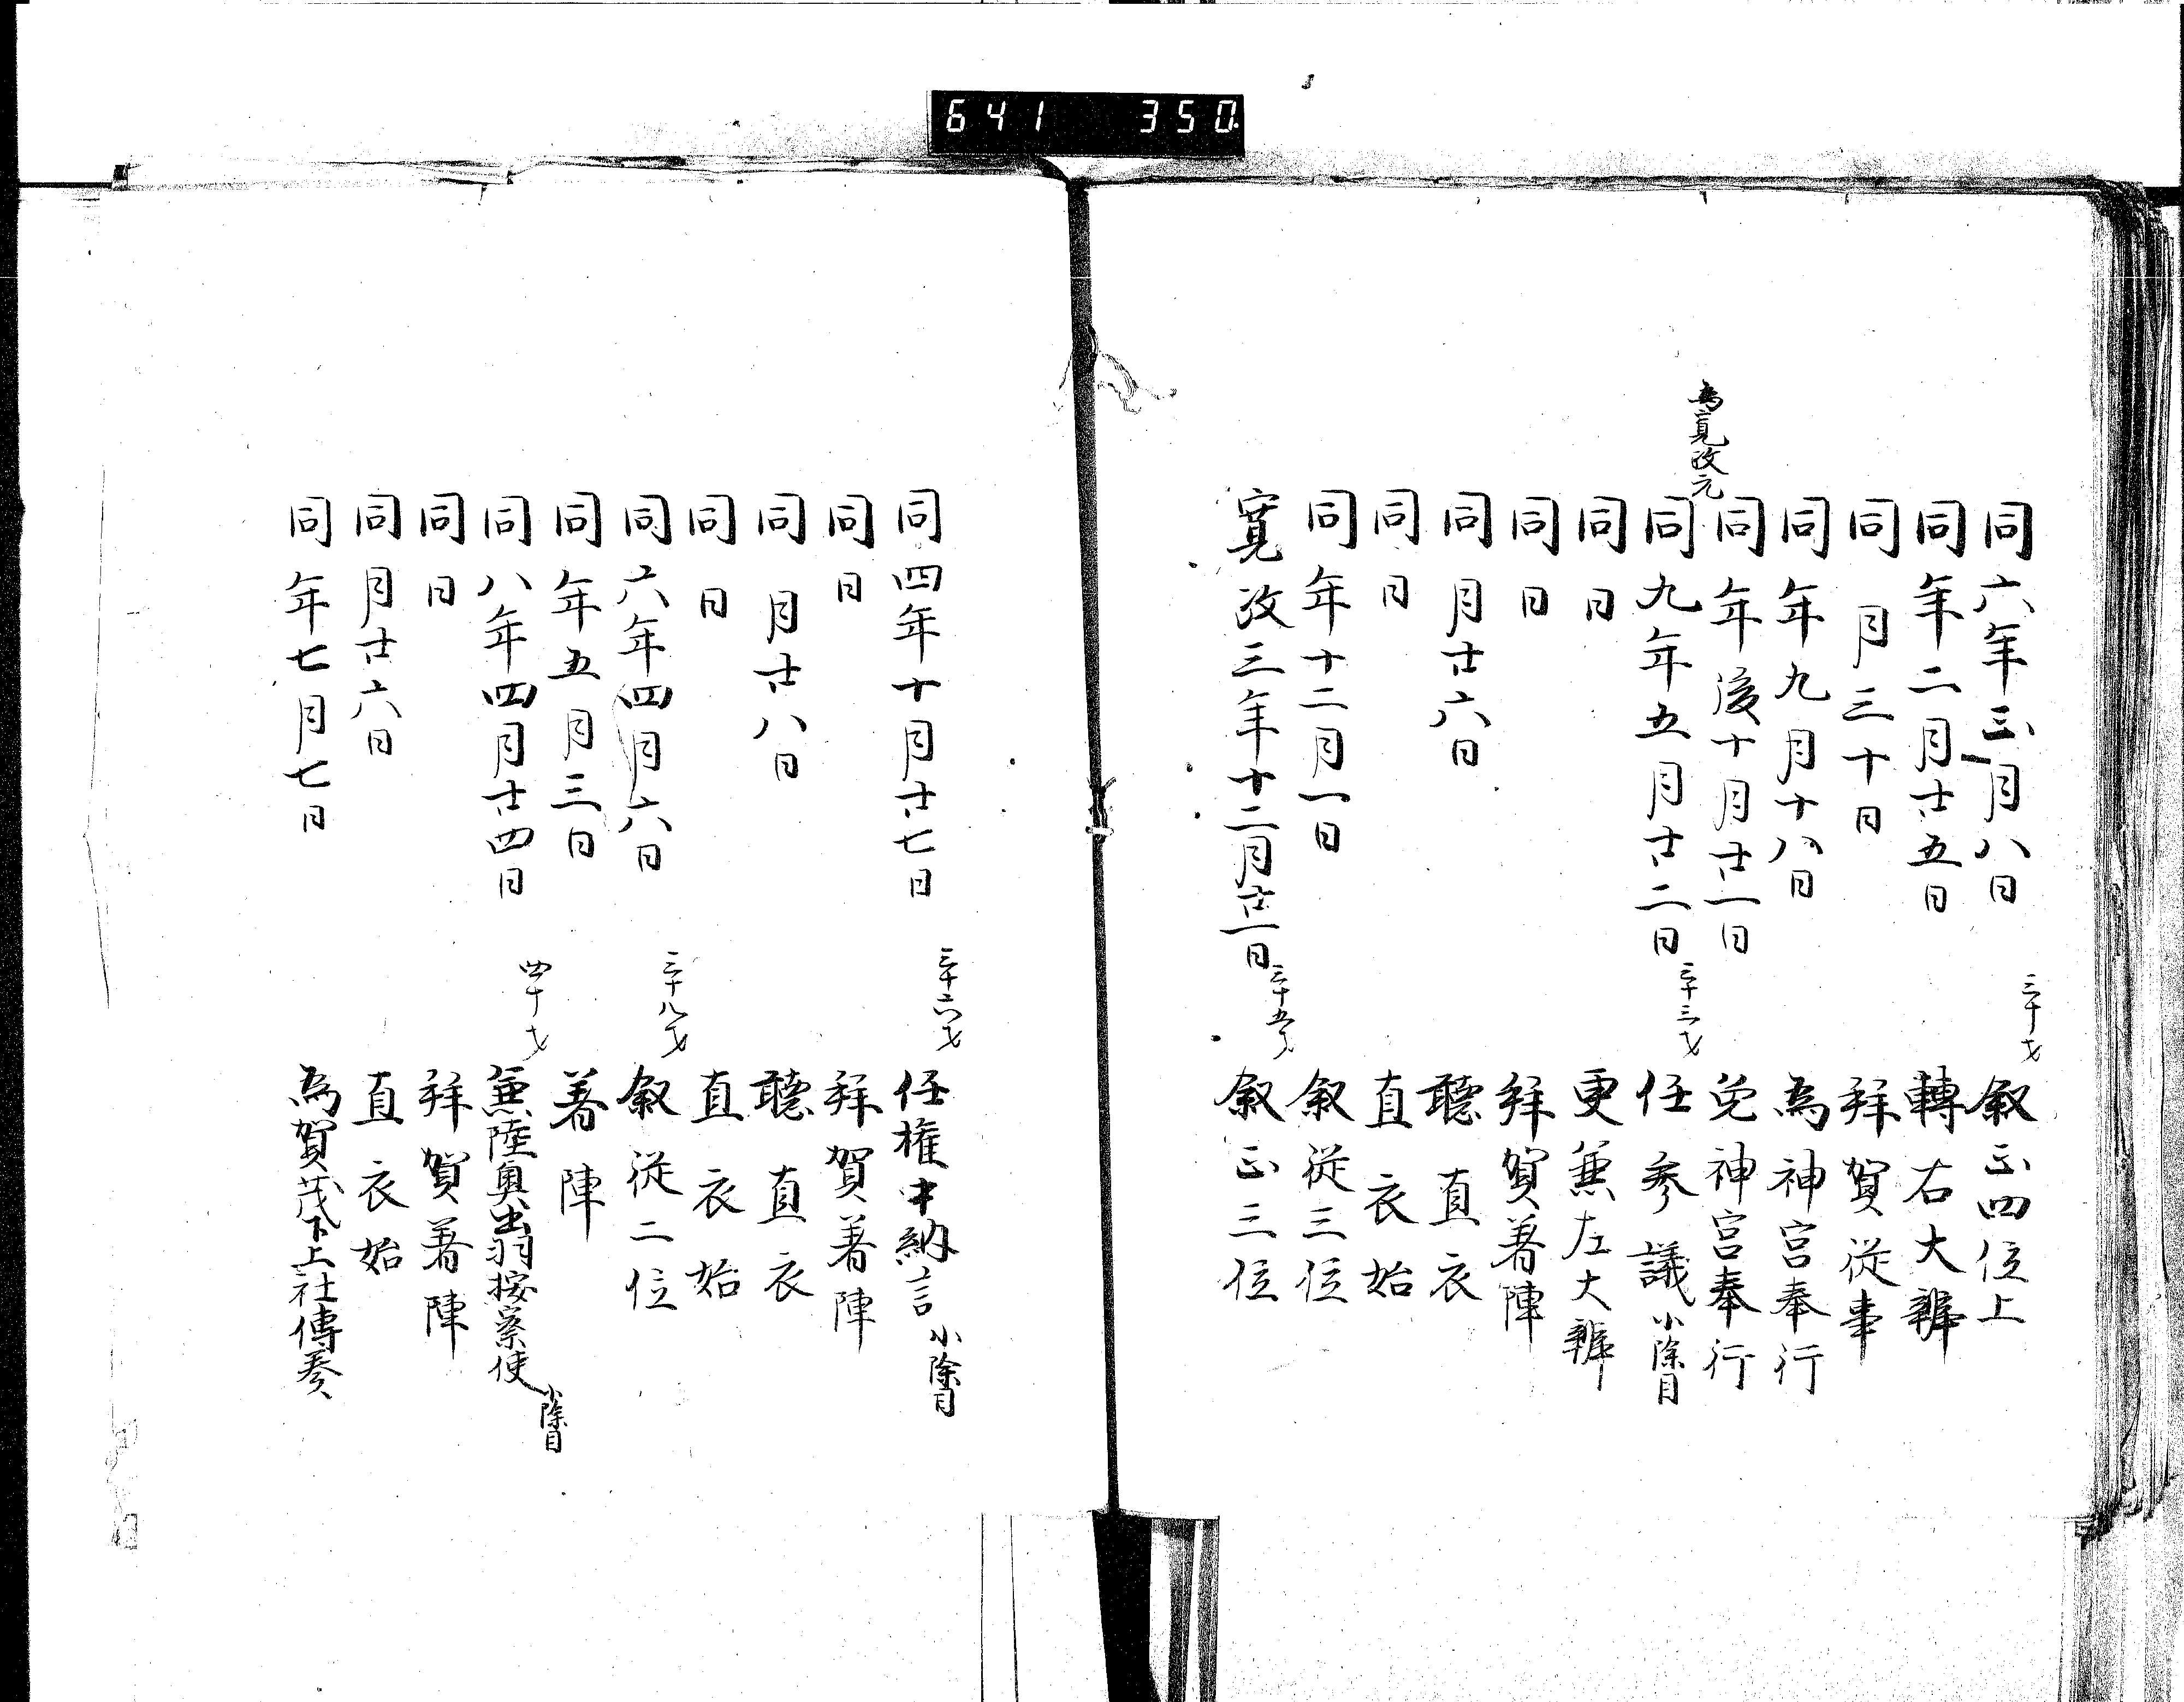 641 350
同六年正月八日 三十才 叙正四位上
同年二月廿五日 轉右大辨
同月三十日 拜賀従事
同年九月十八日 為神宮奉行
同年後十月廿一日 免神宮奉行
為寛政元
同九年五月廿二日 三十三才 任参議 小除目
同日 更兼左大辨
同日 拜賀着陣
同月廿六日 聽直衣
同日 直衣始
同年十二月一日 叙従三位
寛政三年十二月廿一日 三十五才 叙正三位
同四年十月廿七日 三十六才 任権中納言 小除目
同日 拜賀着陣
同月廿八日 聽直衣
同日 直衣始
同六年四月六日 三十八才 叙従二位
同年五月三日 着陣
同八年四月廿四日 四十才 兼陸奥出羽按察使 小除目
同日 拜賀着陣
同月廿六日 直衣始
同年七月七日 為賀茂下上社傳奏